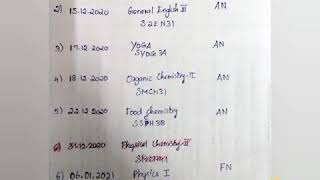 2) 15.12.2020 General English III AN
S2EN31
3) 17.12.2020 YOGA AN
SYOG3A
4) 18.12.2020 Organic Chemistry-II AN
SMCH31
5) 22.12.2020 Food Chemistry AN
31.12.2020 Physical Chemistry-II
6) 06.01.2021 Physics I FN